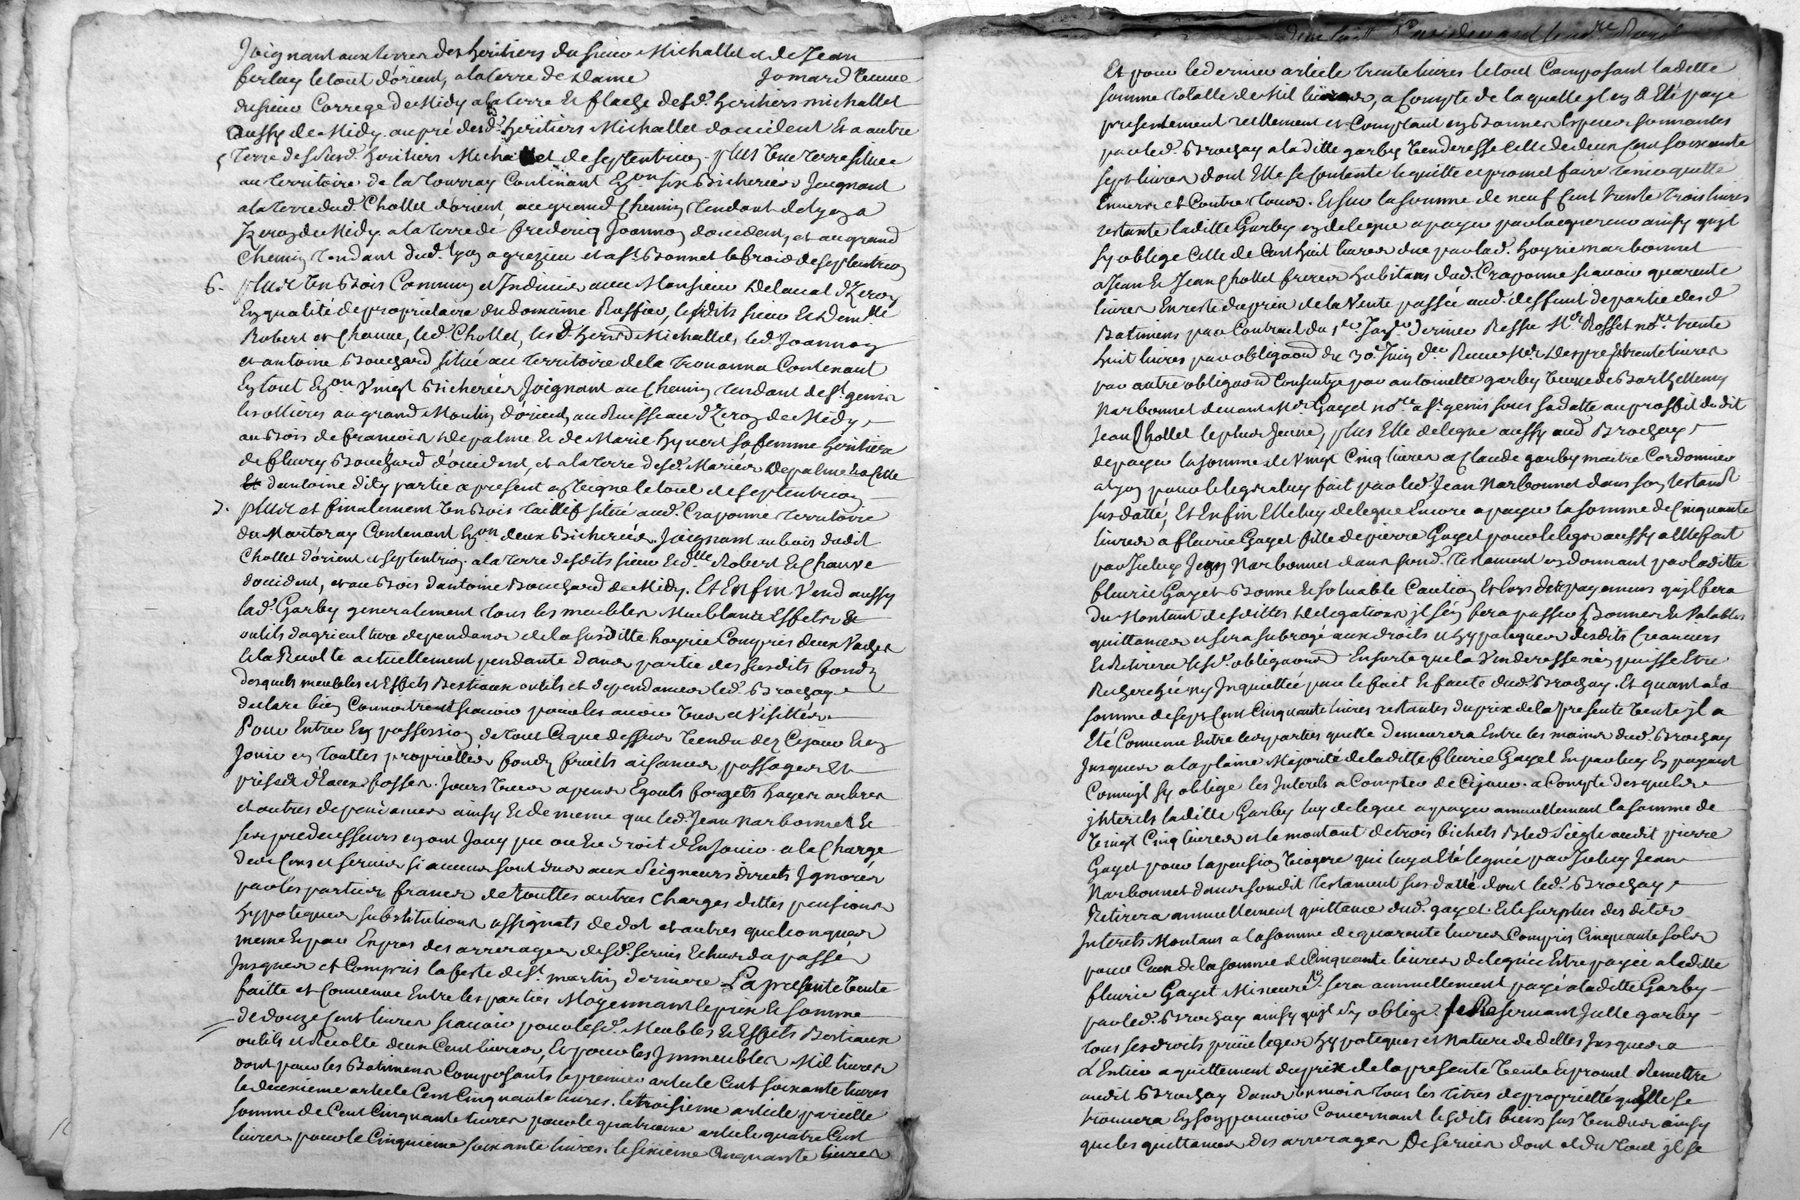 Joignant aux terres des heritiers du sieur Michallet & de Jean
ferlay le tout d'orient, a la terre de Dame Jomard veuve
du sieur Correge de Midy a la terre et flache desd. heritiers michallet
aussy de Midy. au pré desd. heritiers Michallet d'occident Et a autre
5 terre des susd. heritiers Michallet de septentrion. plus Une terre situee
au territoire de la tourray Contenant Eon six Bicherées Joignant
a la terre dud. Chollet d'orient, au grand Chemin tendant de Lyon a
Yzeron de Midy a la terre de frederiq Joannon d'occident, et au grand
Chemin tendant dud. Lyon a grezieu et a St Bonnet le froid de septentrion
6. plus Un Bois Commun et Indivis avec Monsieur Delaval d'Yzeron
En qualité de proprietaire du domaine Ruffier, lesdits sieur et demlle
Robert et Chauve, led. Chollet, lesd. hers Michallet, led. Joannon
et antoine Bouchard situé au territoire de la Contenant
En tout Eon Vingt Bicherées Joignant au Chemin tendant de St genis
les ollieres au grand Moulin d'orient, au Ruisseau d'Yzeron de Midy
au Bois de francois Depalme & de Marie hyvert sa femme heritiere
de fleury Bouchard d'occident, et a la terre desd. Mariés Depalme Ea Celle
d'antoine dity partie a present en teigne le tout de septentrion
7. plus et finalement Un Bois taillif situé aud. Craponne territoire
du Martoray Contenant Eon deux Bicherées. Joignant au bois dudit
Chollet d'orient et septentrion a la terre desdits sieur & dlle Robert & Chauve
d'occident, et au Bois d'antoine Bouchard de Midy. Et Enfin Vend aussy
lad. Garby generalement tous les meubles Meublants Effets &
outils d'agriculture dependans de la susditte hoyrie Compris deux Vaches
& la Recolte actuellement pendante dans partie des susdits fonds
desquels meubles et Effets Bestiaux outils et dependances led. Brochay
declare bien Connoitre et scavoir pour les avoir Vus et Visittés
Pour Entrer En possession de tout Ce que dessus Vendu dez Cejourd'huy
Jouir en touttes proprietés fonds fruits aisances passages &
prises d'Eaux fosses. Jours Vues apens Egouts forgets hayes arbres
et autres dependances ainsy & de meme que led. Jean Narbonnet &
ses predecesseurs en ont Jouy pu ou En droit d'En Jouir. a la Charge
des Cens et servis si aucuns sont dus aux Seigneurs directs Ignorés
par les parties francs de touttes autres charges dettes pensions
hypoteques substitutions assignats de dot et autres quelconques
meme Expres des arrerages desd. servis Echus du passé
Jusques et Compris la feste de St martin derniere La presente Vente
faitte et Convenue Entre les parties Moyennant le prix & somme
de douze Cent livres scavoir pour lesd. Meubles & Effets Bestiaux
outils et Recolte deux Cent livres, Et pour les Immeubles Mil livres
dont pour les Batimens Composants le premier article Cent soixante livres
le deuxieme article Cent Cinquante livres. le troisieme article pareille
somme de Cent Cinquante livres pour le quatrieme article quatre Cent
livres pour le Cinquieme soixante livres. le sixieme Cinquante livres
Et pour le dernier article trente livres le tout Composant laditte
somme totalle de Mil livres, a Compte de laquelle Il en a Eté payé
presentement reellement et Comptant en Bonnes Especes sonnantes
par led. Brochay a laditte garby Venderesse Celle de deux Cent soixante
sept livres dont Elle se Contente le quitte et promet faire tenir quitte
Envers et Contre tous. Et sur la somme de neuf Cent trente trois livres
restante laditte Garby en delegue a payer par l'acquereur ainsy qu'il
s'y oblige Celle de Cent huit livres due par lad. hoyrie narbonnet
a Jean & Jean Chollet freres habitans dud. Craponne scavoir quarante
livres En reste du prix de la Vente passée aud. deffunt de partie desd.
Batimens par Contrat du 1er Jer dernier Ressu Me Rosset nore trente
huit livres par obligaon du 30 Juin der Receu Me Despres & trente livres
par autre obligaon Consentye par antoinette garby Veuve de Barthelemy
Narbonnet devant Me Gayet nore a St genis sous sa datte au proffit dudit
Jean Chollet le plus Jeune, plus Elle delegue aussy aud Brochay
de payer la somme de Vingt Cinq livres a Claude garby maitre Cordonnier
a Lyon pour le legs a luy fait par led. Jean Narbonnet dans son testamt
susdatté, Et Enfin Elle luy delegue Encore a payer la somme de Cinquante
livres a fleurie Gayet fille de pierre Gayet pour le legs aussy a Elle fait
par Iceluy Jean Narbonnet dans sond. testament en donnant par laditte
fleurie Gayet Bonne & solvable Caution Et lors des payemens qu'il fera
du Montant desdittes delegations Il s'en fera passer Bonnes & Valables
quittances et sera subrogé aux droits et hypoteques desdits Creanciers
& Retirera lesd. obligaons Ensorte que la Venderesse n'en puisse Etre
Recherchée ny Inquiettée par le fait & faute dud. Brochay. Et quant a la
somme de sept Cent Cinquante livres restantes du prix de la presente Vente Il a
Eté Convenu Entre les parties qu'elle demeurera Entre les mains dud. Brochay
Jusques a la pleine Majorité de laditte fleurie Gayet En par luy En payant
Comm'il s'y oblige les Interets a Compter de Cejour. a Compte desquels
Interets laditte Garby luy delegue a payer annuellement la somme de
Vingt Cinq livres et le montant de trois bichets Bled seigle audit pierre
Gayet pour la pension Viagere qui luy a Eté leguée par Iceluy Jean
Narbonnet dans sondit testament susdatté dont led. Brochay
Retirera annuellement quittance dud. gayet. & le surplus desdites
Interets Montans a la somme de quarante livres Compris Cinquante sols
pour Ceux de la somme de Cinquante livres deleguée Etre payée a laditte
fleurie Gayet Mineure. sera annuellement payé a laditte Garby
par led. Brochay ainsy qu'il s'y oblige. se Reservant Icelle garby
tous ses droits privileges hypoteques et Nature de dettes Jusques a
L'Entier aquittement du prix de la presente Vente Et promet Remettre
audit Brochay dans un mois tous les titres de proprietté qu'Elle se
trouvera En son pouvoir Concernant lesdits biens sus Vendus ainsy
que les quittances des arrerages de servis dont et du tout Il se